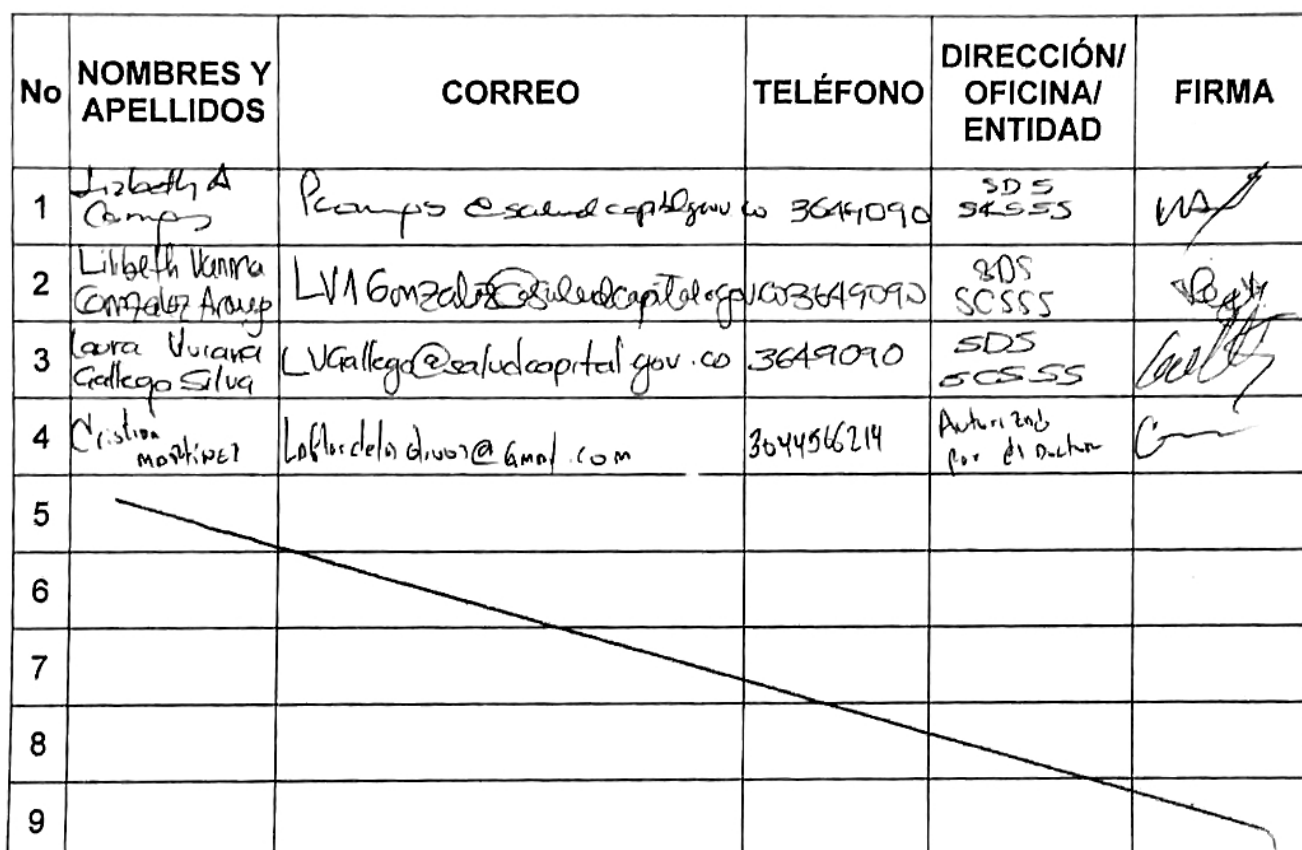 No NOMBRES Y APELLIDOS CORREO TELÉFONO DIRECCIÓN/ OFICINA/ ENTIDAD FIRMA
1 Lizbeth A Campos Pcampos@saludcapital.gov.co 3649090 SDS SCSSS
2 Lilibeth Gonzalez LVAGonzalez@saludcapital.gov.co 3649090 SDS SCSSS
3 Laura Viviana Gallego Silva LVGallego@saludcapital.gov.co 3649090 SDS SCSSS
4 Cristian Martinez 3044566214 Autorizado por el Doctor
5
6
7
8
9